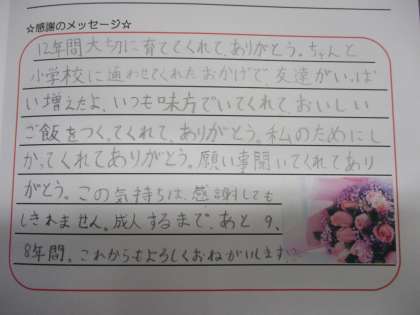 ☆感謝のメッセージ☆
12年間大切に育ててくれて、ありがとう。ちゃんと
小学校に通わせてくれたおかげで、友達がいっぱ
い増えたよ、いつも味方でいてくれて、おいしい
ご飯をつくってくれて、ありがとう。私のためにし
かってくれてありがとう。願い事聞いてくれてあり
がとう。この気持ちは、感謝しても
しきれません。成人するまで、あと9、
8年間。これからもよろしくおねがいします。